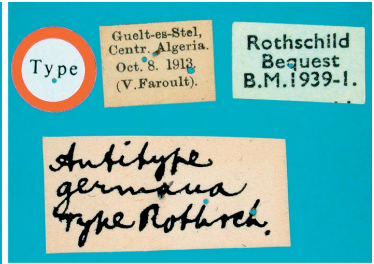 Type
Guelt-es-Stel,
Centr. Algeria.
Oct. 8. 1913.
(V. Faroult).
Rothschild
Bequest
B.M.1939-1.
Antitype
germana
Type Rothsch.